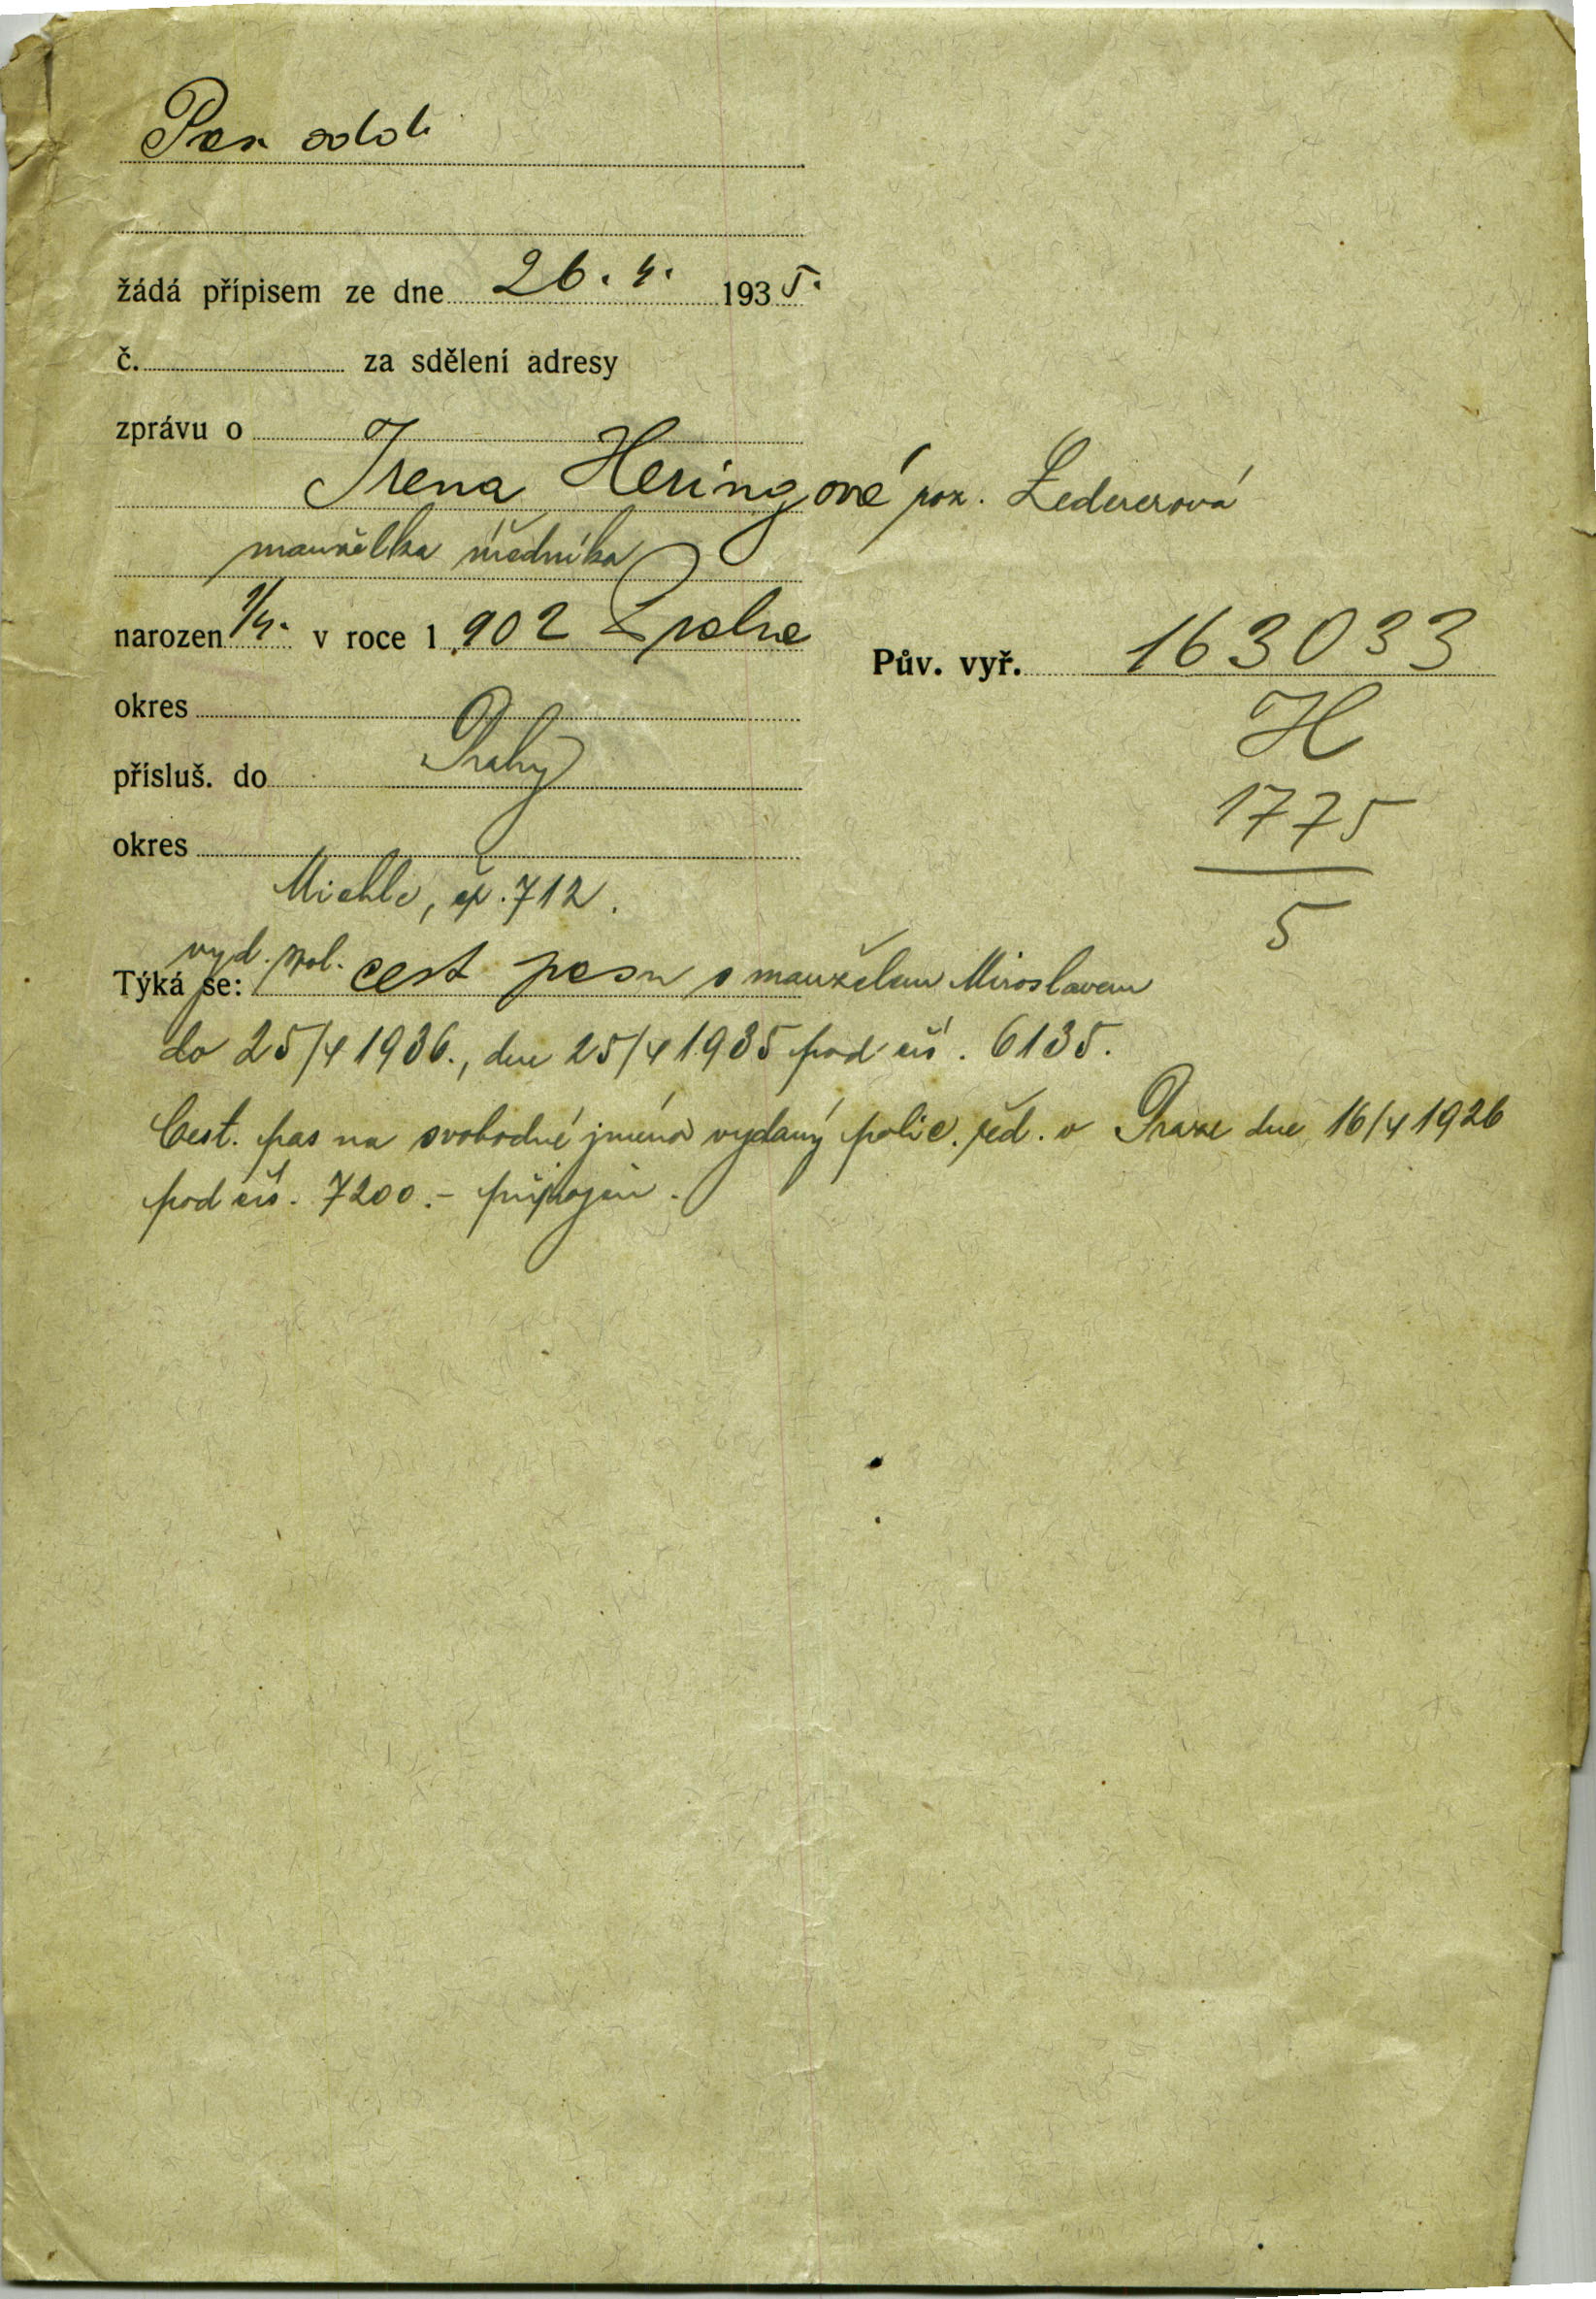 Pas. odd.
žádá přípisem ze dne 26. 4. 1935.
č. za sdělení adresy
zprávu o
Irena Heringové roz. Ledererová
manželka úředníka
narozen 1/4. v roce 1902 Praha
Pův. vyř. 163033
okres
H
přísluš. do Prahy
1775
okres
5
Michle, čp. 712.
vyd. spol.
Týká se: cest pasu s manželem Miroslavem
do 25/4 1936., dne 25/4 1935 pod čís. 6135.
Cest. pas na svobodné jméno vydaný polic. řed. v Praze dne 16/4 1926
pod čís. 7200.- připojen.